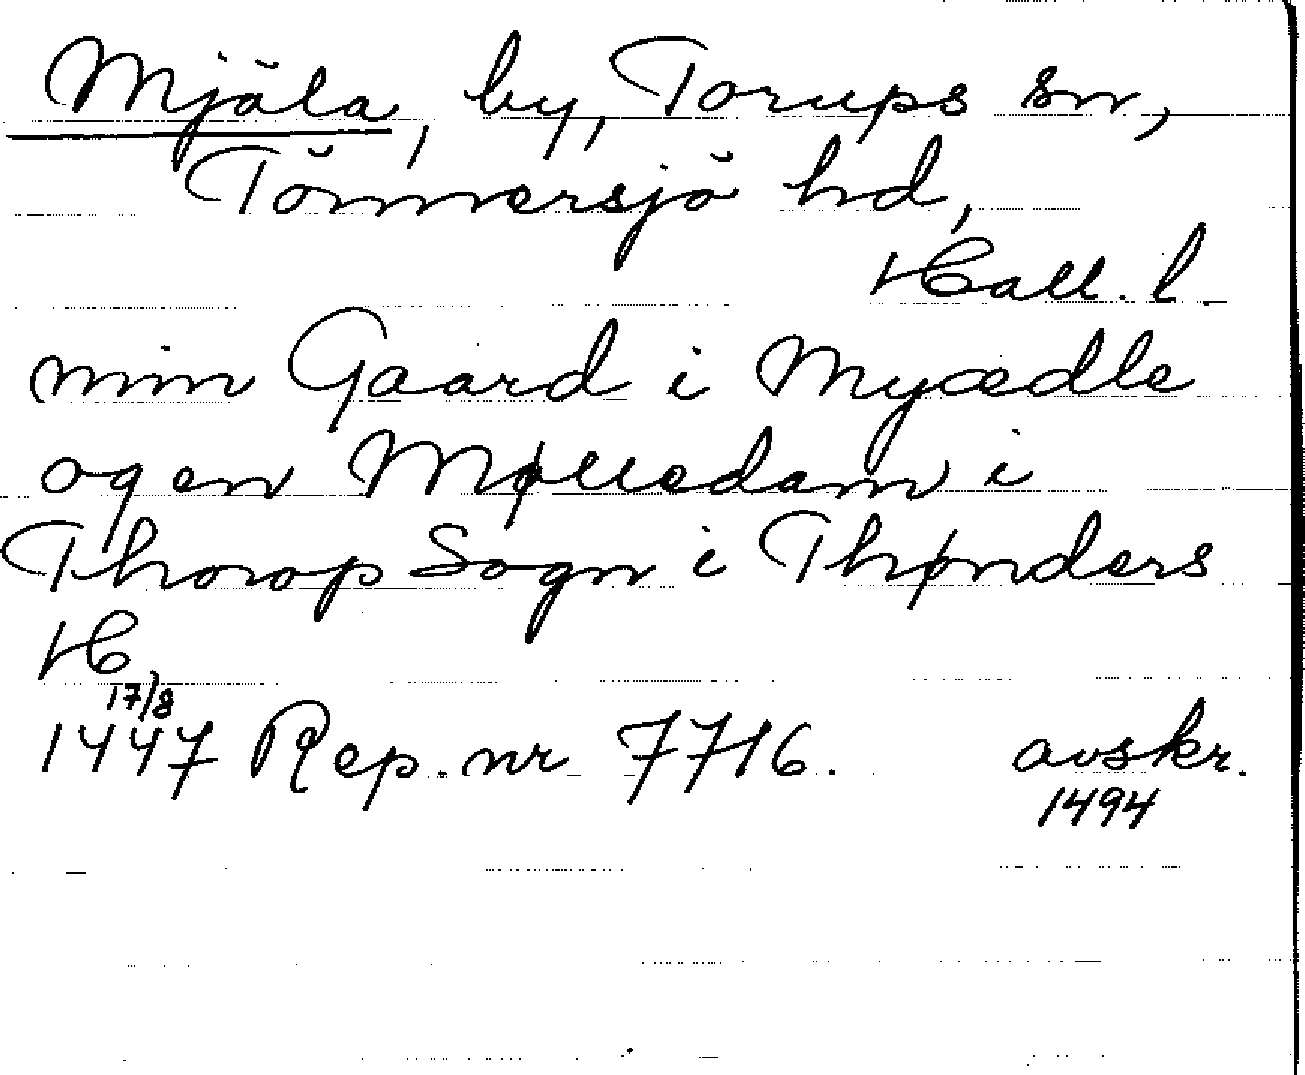 Mjäla, by, Torups sn,
Tönnersjö hd,
Hall. l.
min Gaard i Myædle
og en Mølledam i
Thorop Sogn i Thønders
H
17/8
1447 Rep. nr 7716. avskr.
1494